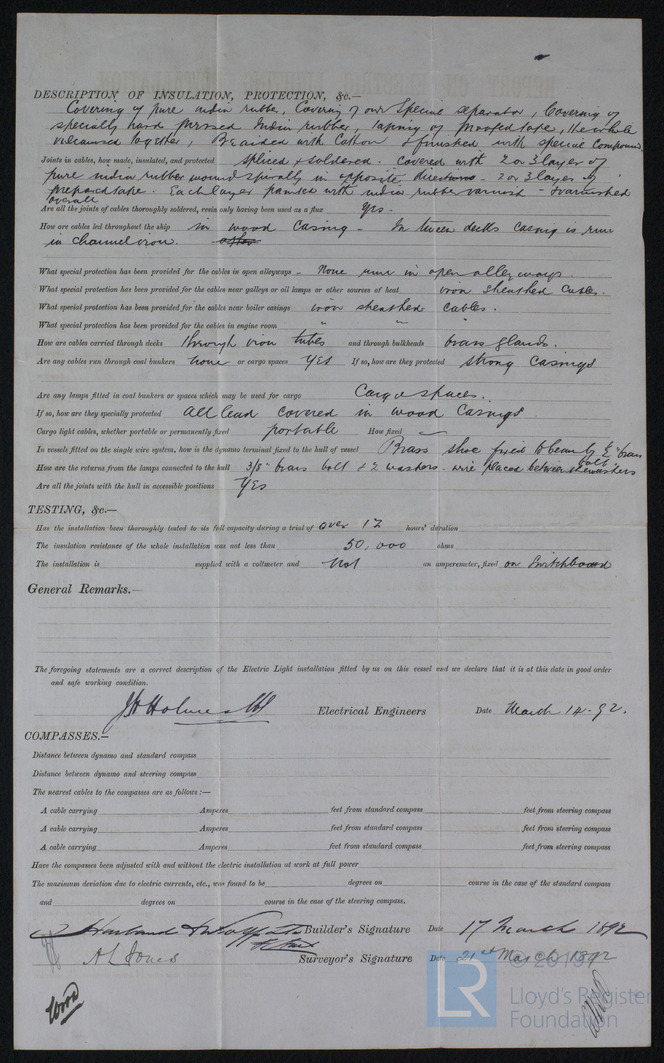 DESCRIPTION OF INSULATION, PROTECTION, &c.—
Covering of pure india rubber, Covering of our Special separator, Covering of
specially hard pressed India rubber, taping of proofed tape, the whole
vulcanised together, Braided with Cotton & finished with special Compound.
Joints in cables, how made, insulated, and protected spliced & soldered. covered with 2 or 3 layer of
pure india rubber wound spirally in opposite directions - 2 or 3 layer of
prepared tape. Each layer painted with india rubber varnish - & varnished
overall
Are all the joints of cables thoroughly soldered, resin only having been used as a flux yes.
How are cables led throughout the ship in wood Casing - In tween decks casing is run
in channel iron.
What special protection has been provided for the cables in open alleyways - None run in open alleyways.
What special protection has been provided for the cables near galleys or oil lamps or other sources of heat iron sheathed cables.
What special protection has been provided for the cables near boiler casings iron sheathed cables.
What special protection has been provided for the cables in engine room " " "
How are cables carried through decks through iron tubes and through bulkheads brass glands.
Are any cables run through coal bunkers none or cargo spaces yes If so, how are they protected strong casings
Are any lamps fitted in coal bunkers or spaces which may be used for cargo Cargo spaces.
If so, how are they specially protected all lead covered in wood casings
Cargo light cables, whether portable or permanently fixed portable How fixed —
In vessels fitted on the single wire system, how is the dynamo terminal fixed to the hull of vessel Brass shoe fixed to beam by ½" brass
bolt
How are the returns from the lamps connected to the hull 3/8" brass bolt & 2 washers. wire placed between the washers
Are all the joints with the hull in accessible positions yes
TESTING, &c.—
Has the installation been thoroughly tested to its full capacity during a trial of over 12 hours' duration
The insulation resistance of the whole installation was not less than 50,000 ohms
The installation is supplied with a voltmeter and not an amperemeter, fixed on Switchboard
General Remarks.—
The foregoing statements are a correct description of the Electric Light installation fitted by us on this vessel and we declare that it is at this date in good order
and safe working condition.
J H Holmes & Co Electrical Engineers Date March 14-92.
COMPASSES.—
Distance between dynamo and standard compass
Distance between dynamo and steering compass
The nearest cables to the compasses are as follows:—
A cable carrying Amperes feet from standard compass feet from steering compass
A cable carrying Amperes feet from standard compass feet from steering compass
A cable carrying Amperes feet from standard compass feet from steering compass
Have the compasses been adjusted with and without the electric installation at work at full power
The maximum deviation due to electric currents, etc., was found to be degrees on course in the case of the standard compass
and degrees on course in the case of the steering compass.
Harland & Wolff Builder's Signature Date 17 March 1892
A L Jones Surveyor's Signature Date 21st March 1892
LR
© 2019
Lloyd's Register
Foundation